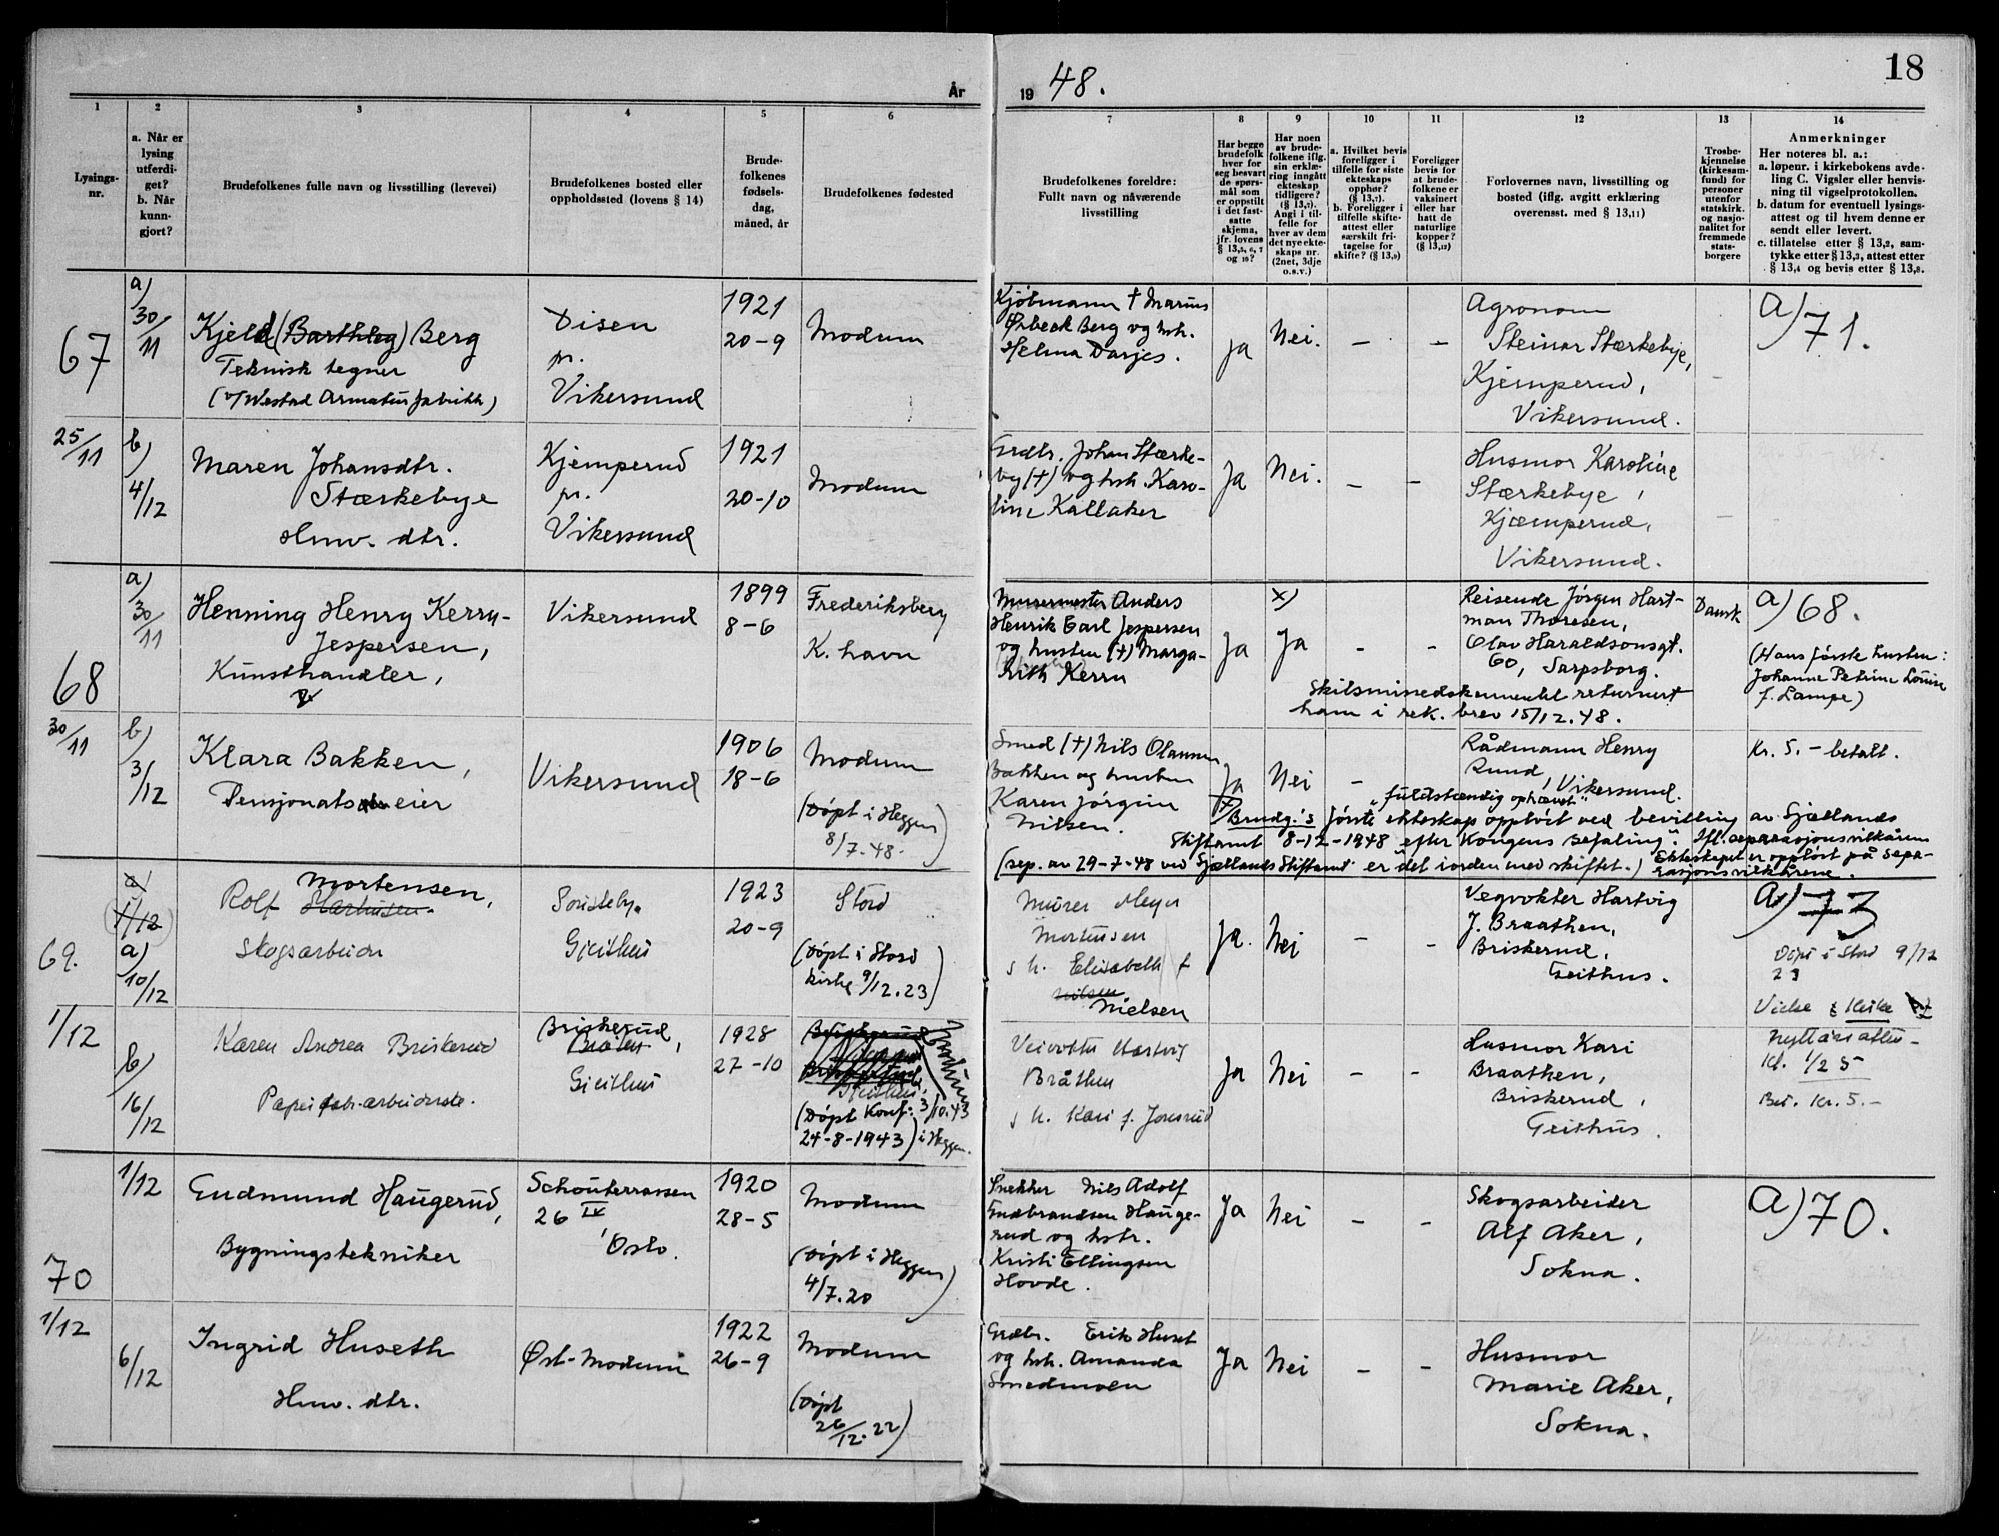 År
19 48.
18
1
2
3
4
5
6
7
8
9
10
11
12
13
14
Lysings-
nr.
a. Når er
lysing
utferdi-
get?
b. Når
kunn-
gjort?
Brudefolkenes fulle navn og livsstilling (levevei)
Brudefolkenes bosted eller
oppholdssted (lovens § 14)
Brude-
folkenes
fødsels-
dag,
måned, år
Brudefolkenes fødested
Brudefolkenes foreldre:
Fullt navn og nåværende
livsstilling
Har begge
brudefolk
hver for
seg besvart
de spørs-
mål som
er oppstilt
i det fast-
satte
skjema,
jfr. lovens
§ 13,5, 6, 7
og 10?
Har noen
av brude-
folkene iflg.
sin erklæ-
ring inngått
ekteskap
tidligere?
(§ 13,7).
Angi i til-
felle for
hver av dem
det nye ekte-
skaps nr.
(2net, 3dje
o.s.v.)
a. Hvilket bevis
foreligger i
tilfelle for siste
ekteskaps
opphør?
(§ 13,7).
b. Foreligger i
tilfelle skifte-
attest eller
særskilt fri-
tagelse for
skifte? (§ 13,9)
Foreligger
bevis for
at brude-
folkene er
vaksinert
eller har
hatt de
naturlige
kopper?
(§ 13,12)
Forlovernes navn, livsstilling og
bosted (iflg. avgitt erklæring
overensst. med § 13,11)
Trosbe-
kjennelse
(kirkesam-
fund) for
personer
utenfor
statskirk.
og nasjo-
nalitet for
fremmede
stats-
borgere
Anmerkninger
Her noteres bl. a.:
a. løpenr. i kirkebokens avde-
ling C. Vigsler eller henvis-
ning til vigselprotokollen.
b. datum for eventuell lysings-
attest og til hvem denne er
sendt eller levert.
c. tillatelse etter § 13,2, sam-
tykke etter § 13,3, attest etter
§ 13,4 og bevis etter § 13,8.
67
25/11
a)
30/11
Kjeld (Barthleg) Berg
Teknisk tegner
(v/ Westad Armaturfabrikk)
Disen
pr.
Vikersund
1921
20-9
Modum
Kjöbmann † Marius
Ørbeck Berg og hsh.
Helma Darjes.
Ja
Nei.
–
–
Agronom
Steinar Stærkebye,
Kjemperud,
Vikersund.
–
a) 71.
b)
4/12
Maren Johansdtr.
Stærkebye
Hmv. dtr.
Kjemperud
pr.
Vikersund
1921
20-10
Modum
Grdbr. Johan Stærke-
by (†) og hsh. Karo-
line Kallaker
Ja
Nei.
–
–
Husmor Karoline
Stærkebye,
Kjæmperud,
Vikersund.
–
68
30/11
a)
30/11
Henning Henry Kerrn-
Jespersen,
Kunsthandler,
Vikersund
1899
8-6
Frederiksberg
K. havn
Murermester Anders
Henrik Carl Jespersen
og hustru (†) Marga-
rith Kerrn
Ja
x)
Ja
–
–
Reisende Jörgen Hart-
man Thoresen,
Olav Haraldsonsgt.
60, Sarpsborg.
Dansk
a) 68.
(Hans förste hustru:
Johanne Petrine Louise
f. Lampe)
Skilsmissedokumentet returnert
ham i rek. brev 15/12.48.
b)
3/12
Klara Bakken,
Pensjonatseier
Vikersund
1906
18-6
Modum
(Döpt i Heggen
8/7.48.)
Smed (†) Nils Olaussen
Bakken og hustru
Karen Jörgine
Nilsen.
Ja
Nei
–
Rådmann Henry
Rund, Vikersund.
Kr. 5.– betalt.
"fuldstændig ophævet"
x) Brudg.'s förste ekteskap opplöst ved bevilling av Sjællands
Stiftamt 8-12-1948 "efter Kongens Befaling". Ifl. separasjonsvilkårene
(sep. av 29-7-48 ved Sjællands Stiftamt er det i orden med skiftet.) Ekteskapet er opplöst på sepa-
rasjonsvilkårene.
69.
1/12
a)
1/12
a)
10/12
Rolf Mortensen,
Skogsarbeider
Geithus
1923
20-9
Stord
(Döpt i Stord
kirke 9/12.23)
Murer Meyer
Mortensen
s h. Elisabeth f
Nilsen
Nielsen
Ja.
Nei
–
–
Vegvokter Hartvig
J. Braathen,
Briskerud,
Geithus.
a) 73
Döpt i Stord 9/12
23
Vielse i Kirke
Nyttårsaften
Kl. 1/2 5
Bet. Kr. 5.–
b)
16/12
Karen Andrea Briskerud
Papirfabr.arbeiderske.
Briskerud,
Geithus
1928
27-10
Modum
(Döpt Konf: 3/10.43
24-8-1943) i Heggen.
Veivokter Hartvig
Bråthen
s h. Kari f. Jonsrud
Ja
Nei
–
–
Husmor Kari
Braathen,
Briskerud,
Geithus.
70
1/12
1/12
Gudmund Haugerud,
Bygningstekniker
Schouterrassen
26 IV,
Oslo.
1920
28-5
Modum
(Döpt i Heggen
4/7.20)
Snekker Nils Adolf
Gudbrandsen Hauge-
rud og hstr.
Kristi Ellingsen
Hovde.
Ja
Nei
–
–
Skogsarbeider
Alf Aker,
Sokna.
a) 70.
6/12
Ingrid Huseth
Hmv. dtr.
Øst-Modum
1922
26-9
Modum
(Döpt
26/12.22)
Grdbr. Erik Huset
og hsh. Amanda
Smedmoen
Ja
Nei
–
–
Husmor
Marie Aker,
Sokna.